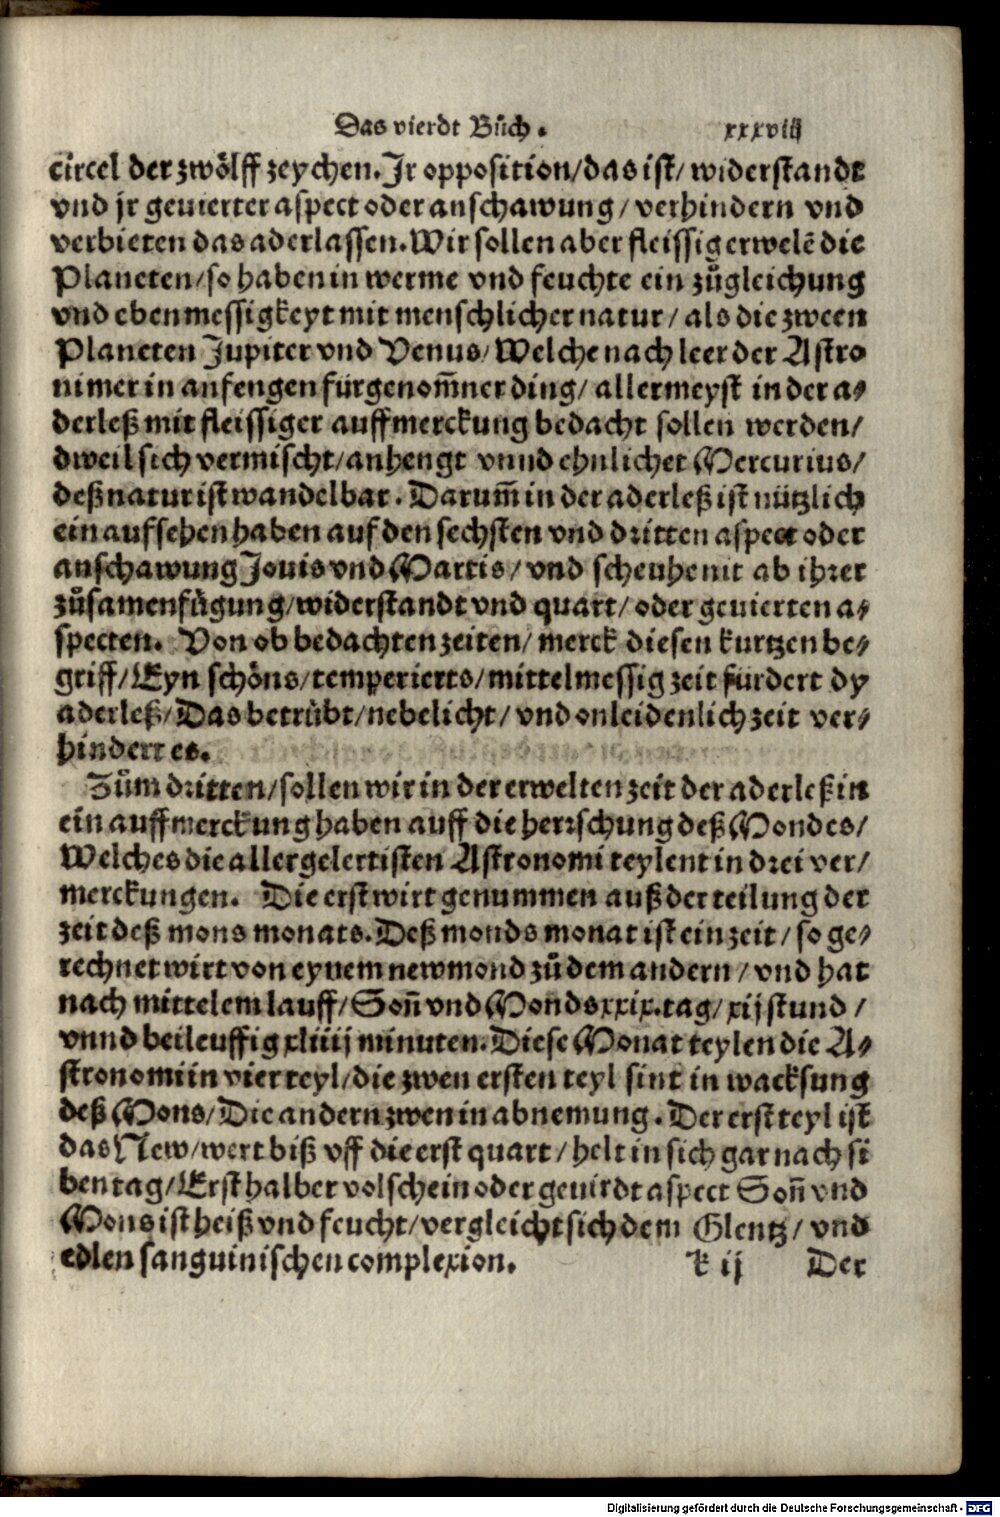 Das vierdt Bůch. xxxviij
circel der zwölff zeychen. Jr opposition/das ist/ widerstandt
vnd jr geuierter aspect oder anschawung/ verhindern vnd
verbieten das aderlassen. Wir sollen aber fleissig erwelẽ die
Planeten/so haben in werme vnd feuchte ein zůgleichung
vnd ebenmessigkeyt mit menschlicher natur/ als die zween
Planeten Jupiter vnd Venus/ Welche nach leer der Astro
nimer in anfengen fürgenom̃ner ding/ allermeyst in der a⸗
derleß mit fleissiger auffmerckung bedacht sollen werden/
dweil sich vermischt/anhengt vnnd ehnlichet Mercurius/
deß natur ist wandelbar. Darum̃ in der aderleß ist nützlich
ein aufsehen haben auf den sechsten vnd dritten aspect oder
anschawung Jouis vnd Martis/ vnd scheuhe nit ab ihrer
zůsamenfůgung/widerstandt vnd quart/ oder geuierten a⸗
specten. Von ob bedachten zeiten/ merck diesen kurtzen be⸗
griff/ Eyn schöns/temperierts/mittelmessig zeit fürdert dy
aderleß/ Das betrübt/nebelicht/ vnd onleidenlich zeit ver⸗
hindert es.
Zům dritten/sollen wir in der erwelten zeit der aderleß in
ein auffmerckung haben auff die herrschung deß Mondes/
Welches die allergelertisten Astronomi teylent in drei ver/
merckungen. Die erst wirt genummen auß der teilung der
zeit deß mons monats. Deß monds monat ist ein zeit/ so ge⸗
rechnet wirt von eynem newmond zů dem andern/ vnd hat
nach mittelem lauff/ Son̄ vnd Monds xxix. tag/ xij stund /
vnnd beileuffig xliiij minuten. Diese Monat teylen die A⸗
stronomi in vier teyl/die zwen ersten teyl sint in wacksung
deß Mons/ Die andern zwen in abnemung. Der erst teyl ist
das New/wert biß vff die erst quart/ helt in sich gar nach si
ben tag/ Erst halber volschein oder geuirdt aspect Son̄ vnd
Mons ist heiß vnd feucht/vergleicht sich dem Glentz/ vnd
edlen sanguinischen complexion. k ij Der
Digitalisierung gefördert durch die Deutsche Forschungsgemeinschaft - DFG